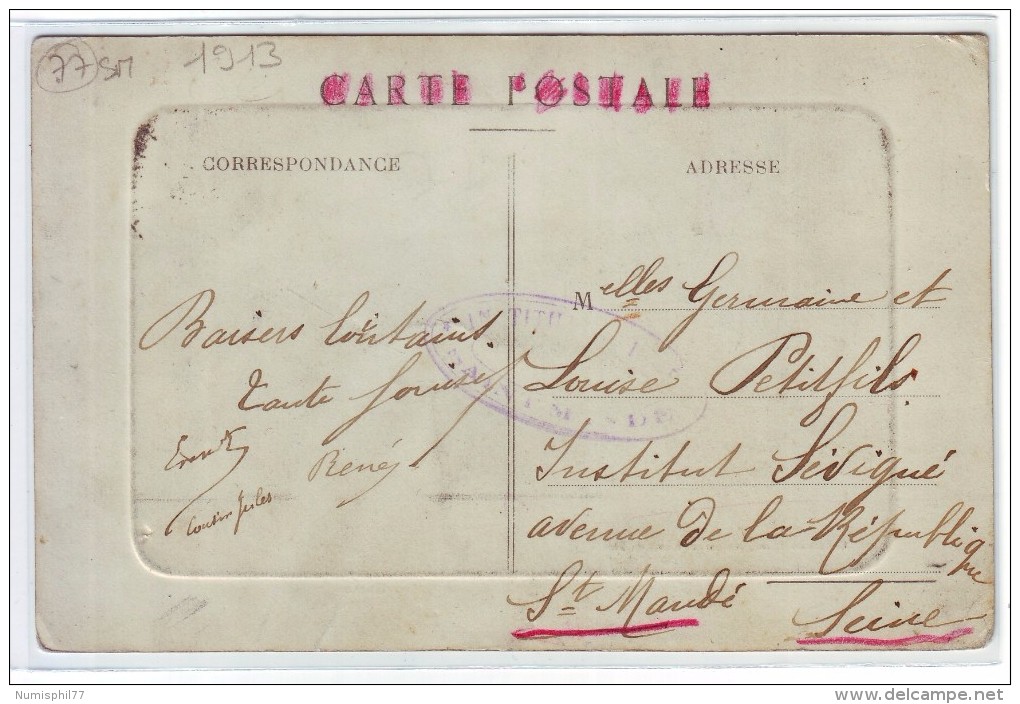 77 SM 1913
CARTE POSTALE
CORRESPONDANCE
ADRESSE
Baisers lointains.
Tante Louise
René
Cousin Jules
Melles Germaine et
Louise Petitfils
Institut Sévigné
avenue de la République
St Mandé
Seine
INSTITU
Numisphil77
www.delcampe.net